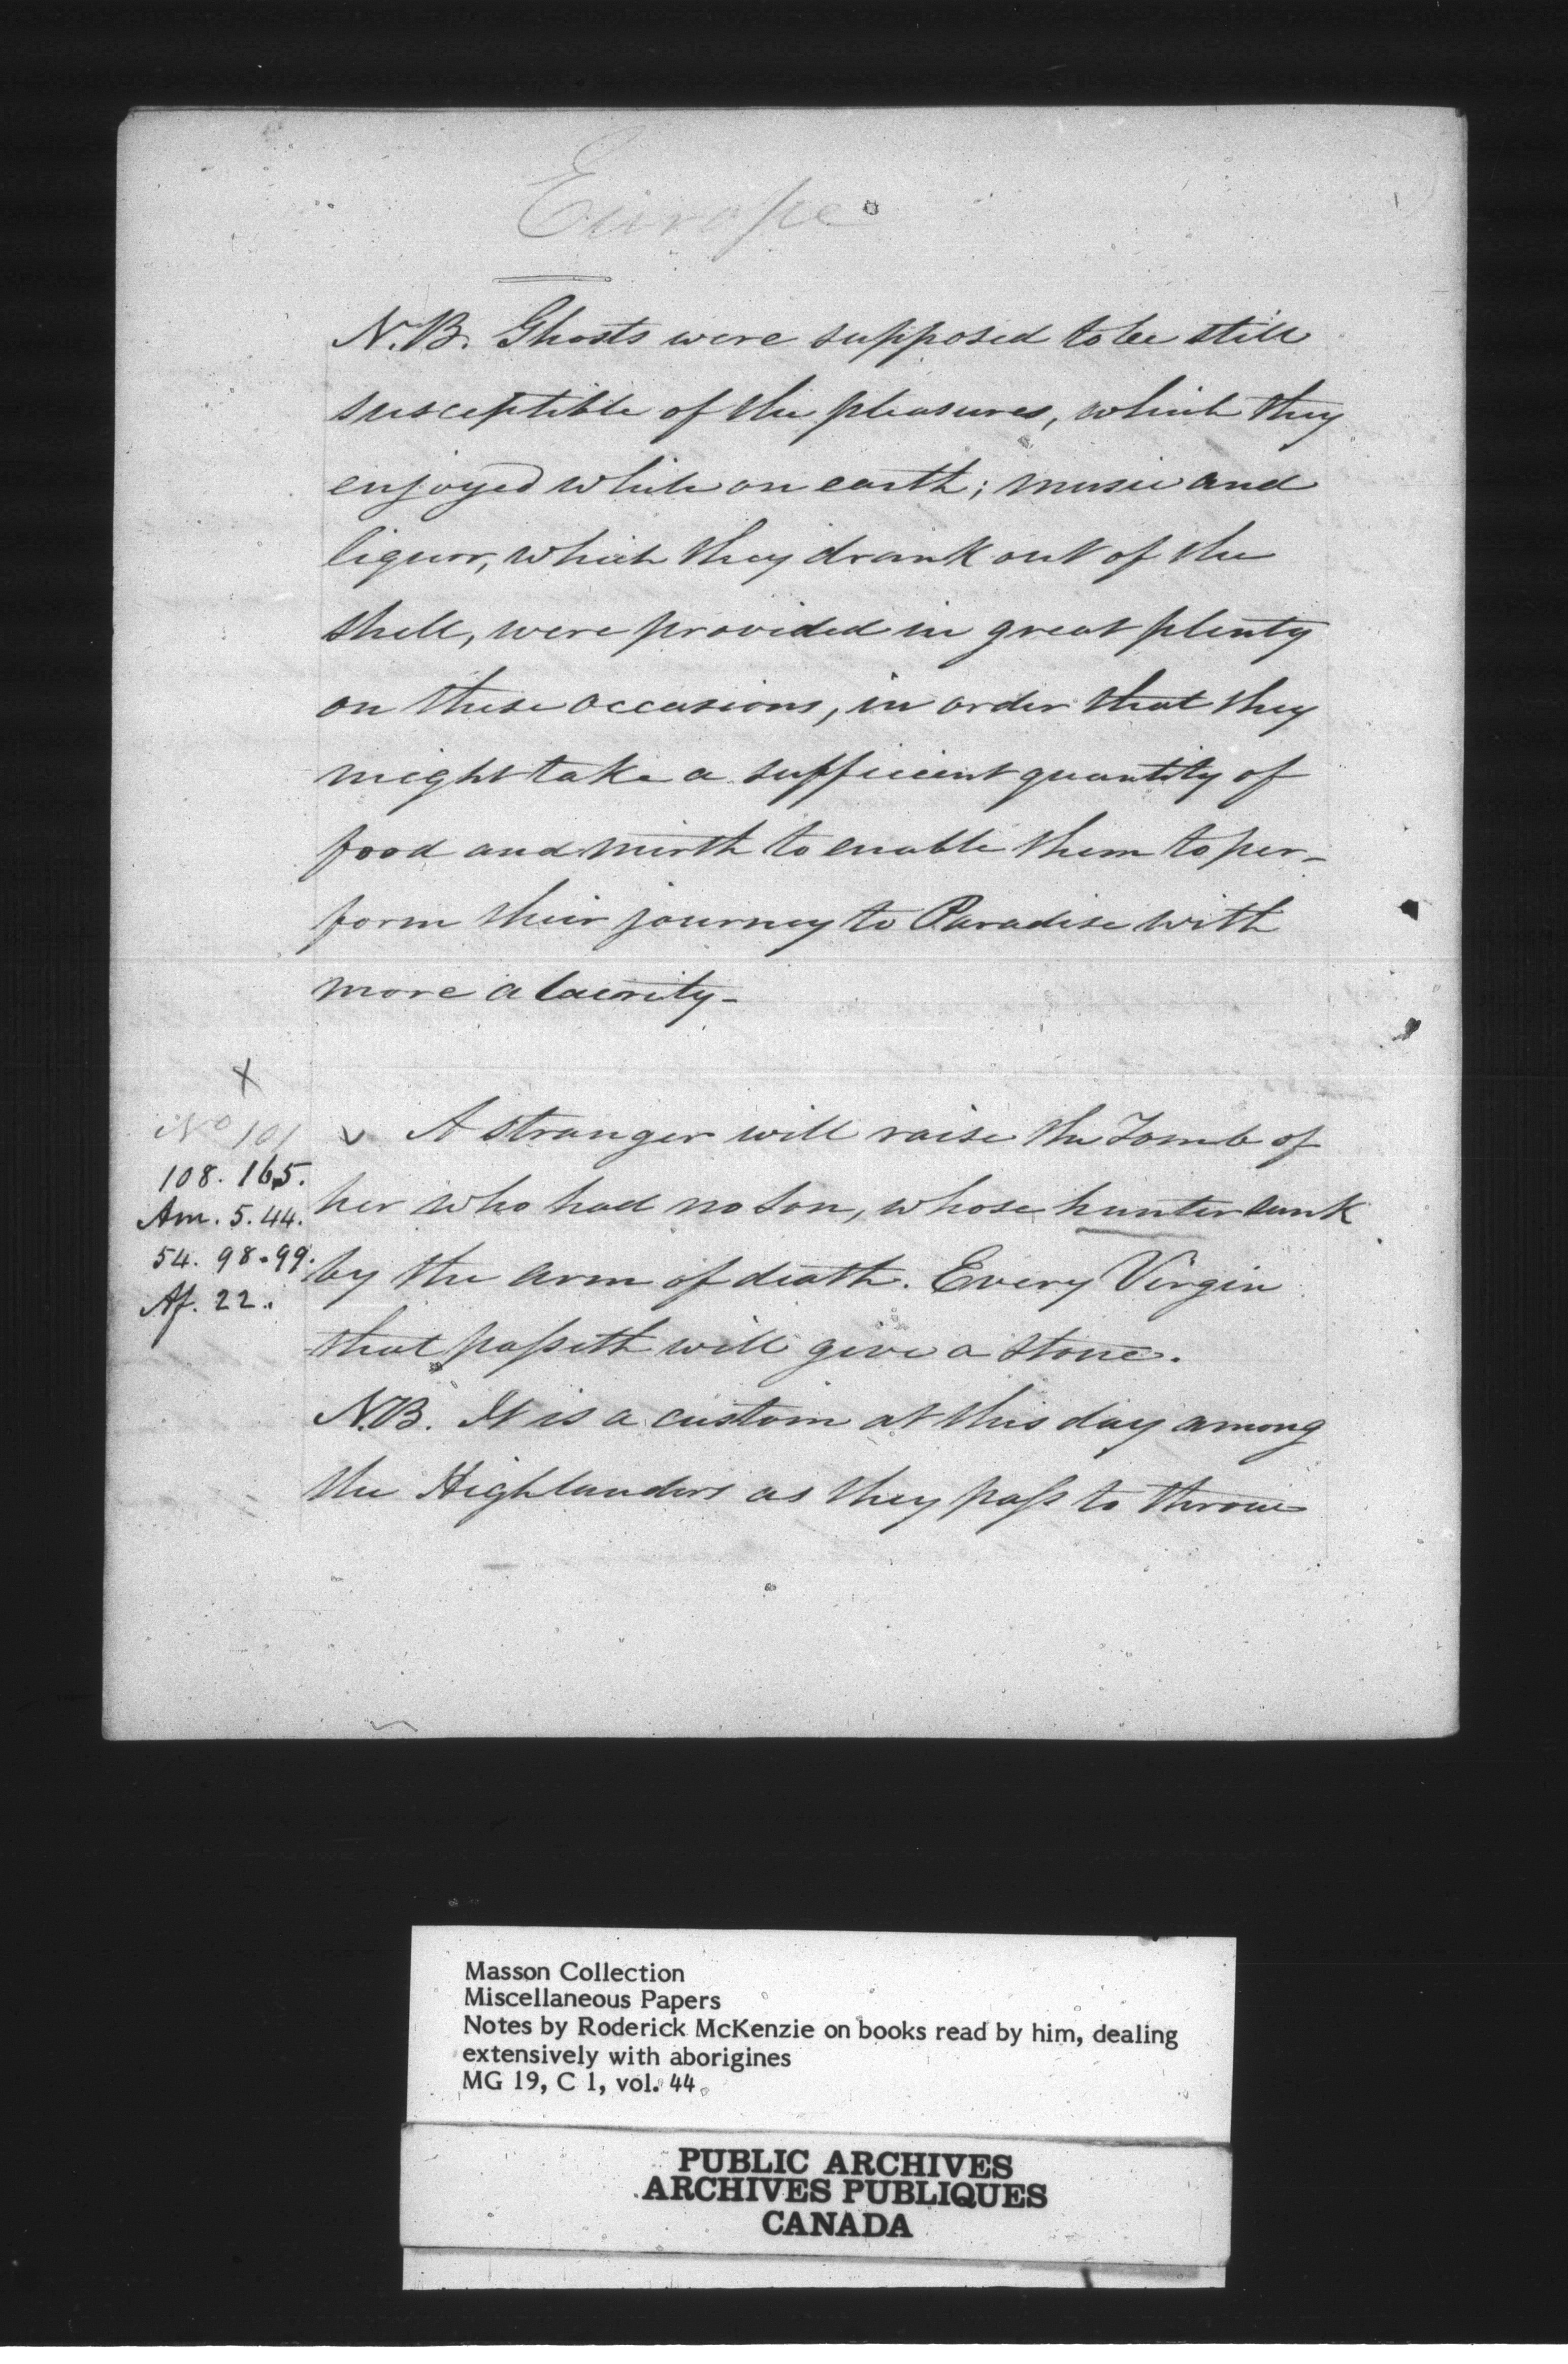 Europe
N.B. Ghosts were supposed to be still
susceptible of the pleasures, which they
enjoyed while on earth; music and
liquor, which they drank out of the
shell, were provided in great plenty
on these occasions, in order that they
might take a sufficient quantity of
food and mirth to enable them to per-
form their journey to Paradise with
more alacrity-
X
No 101
108. 165.
Am. 5. 44.
54. 98-99.
Af. 22.
A stranger will raise the Tomb of
her who had no son, whose hunter sunk
by the arm of death. Every Virgin
that passeth will give a stone.
N.B. It is a custom at this day among
the Highlanders as they pass to throw
Masson Collection
Miscellaneous Papers
Notes by Roderick McKenzie on books read by him, dealing
extensively with aborigines
MG 19, C 1, vol. 44
PUBLIC ARCHIVES
ARCHIVES PUBLIQUES
CANADA